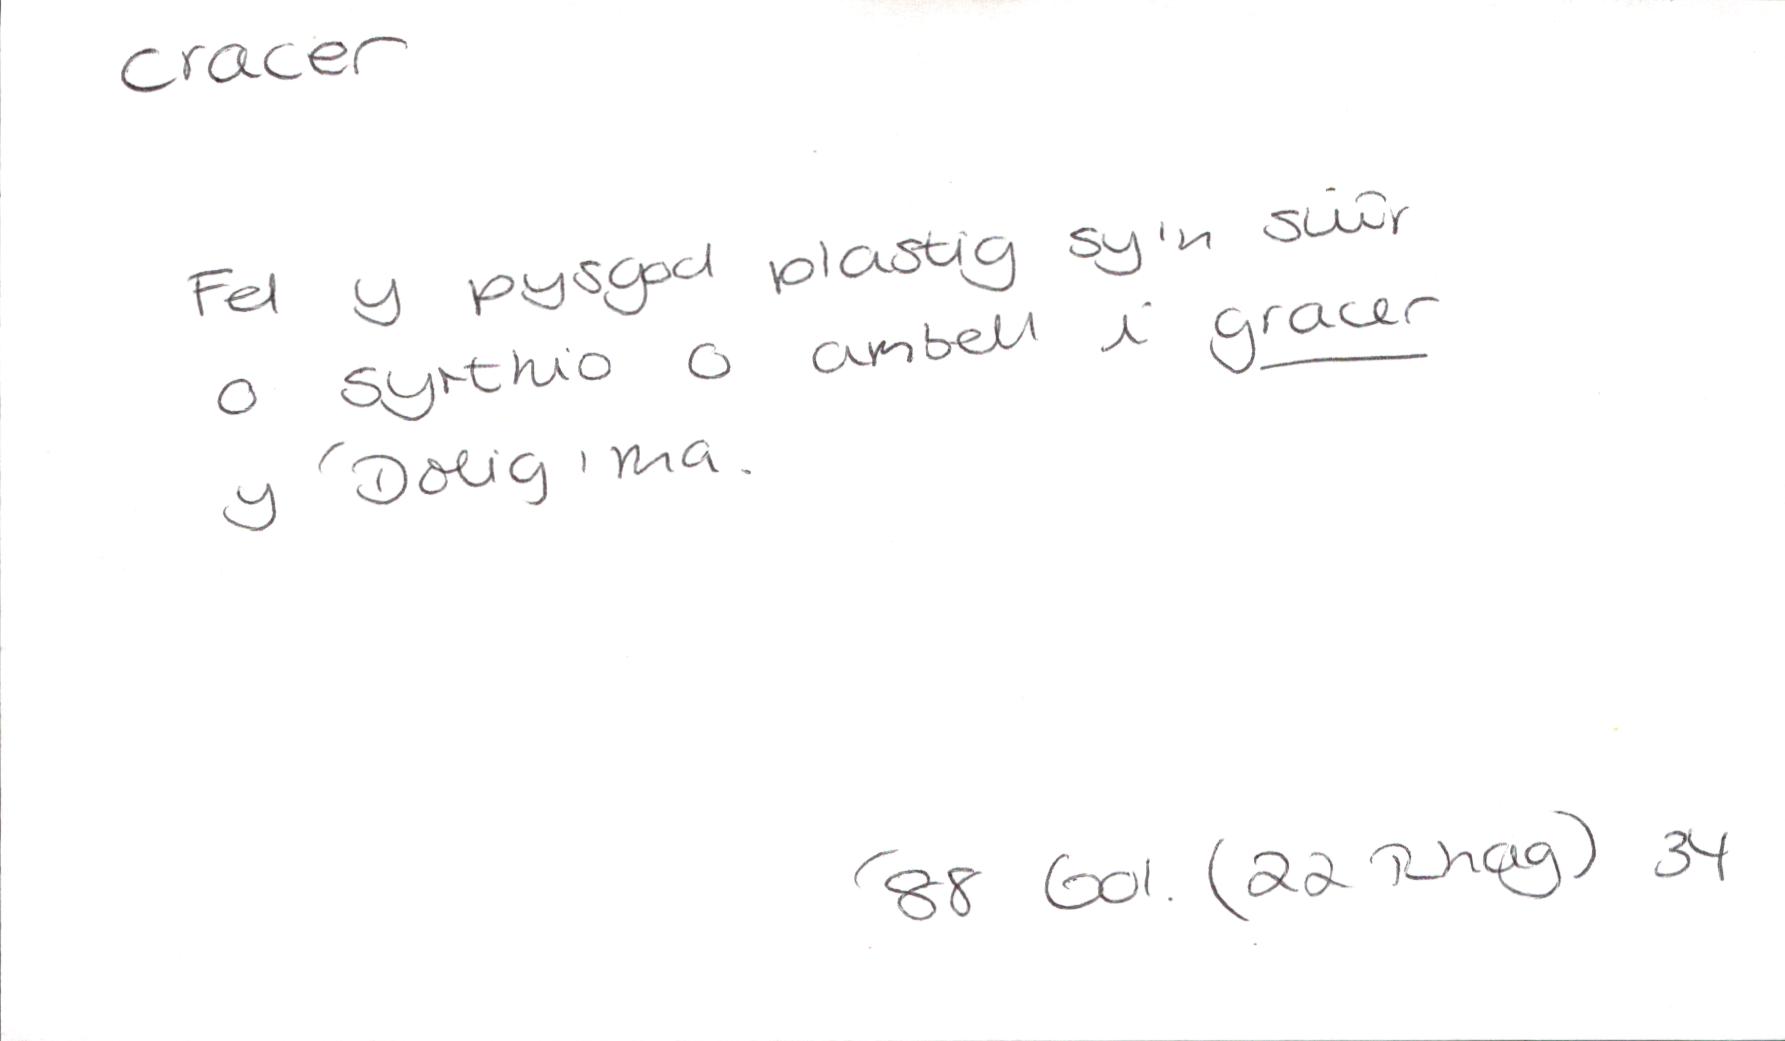 cracer
Fel y pysgod plastig sy'n siŵr
o syrthio o ambell i gracer
y 'Dolig 'ma.
'88 Gol. (22 Rhag) 34